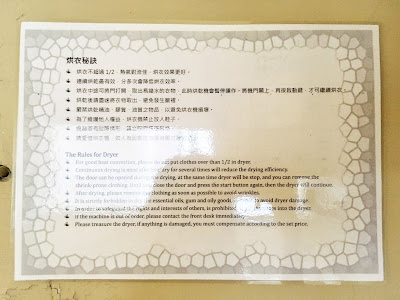 烘衣秘訣
烘衣不超過 1/2，熱氣對流佳，烘衣效果更好。
連續烘乾最有效，分多次會降低烘衣效率。
烘衣中途可將門打開，取出易縮水的衣物，此時烘衣機會暫停運作，將機門關上，再按啟動鍵，才可繼續烘衣
烘乾後請盡速將衣物取出，避免發生皺褶。
嚴禁烘乾精油、膠質、油漬之物品，以避免烘衣機損壞。
為了維護他人權益，烘衣機禁止放入鞋子。
The Rules for Dryer
For good heat convection, please do not put clothes over than 1/2 in dryer.
Continuous drying is most effective, dry for several times will reduce the drying efficiency.
The door can be opened during the drying, at the same time dryer will be stop, and you can remove the
shrink-prone clothing. Until you close the door and press the start button again, then the dryer will continue.
After drying, please remove the clothing as soon as possible to avoid wrinkles.
It is strictly forbidden to dry essential oils, gum and oily goods, to avoid dryer damage.
In order to safeguard the rights and interests of others, is prohibited into the dryer.
If the machine is out of order, please contact the front desk immediately.
Please treasure the dryer, if anything is damaged, you must compensate according to the set price.